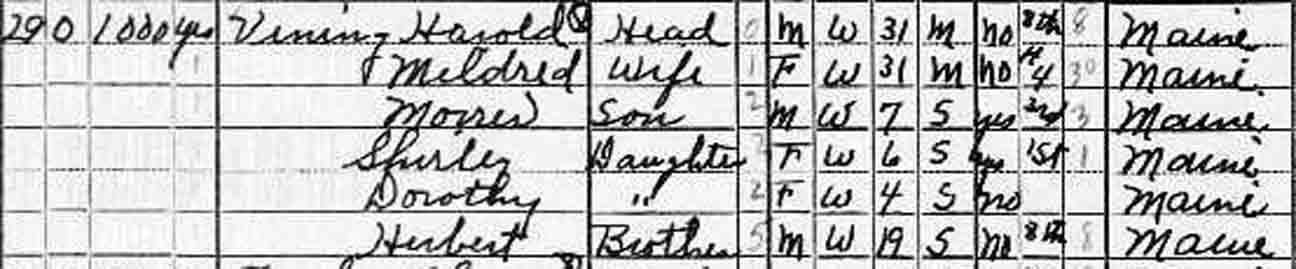 290 1000 yes Vining Harold Head 0 M W 31 M no 8th 8 Maine
Mildred Wife 1 F W 31 M no H4 30 Maine
Morres Son 2 M W 7 S yes 2nd 3 Maine
Shirley Daughter 2 F W 6 S yes 1st 1 Maine
Dorothy " 2 F W 4 S no Maine
Herbert Brother 5 M W 19 S no 8th 8 Maine